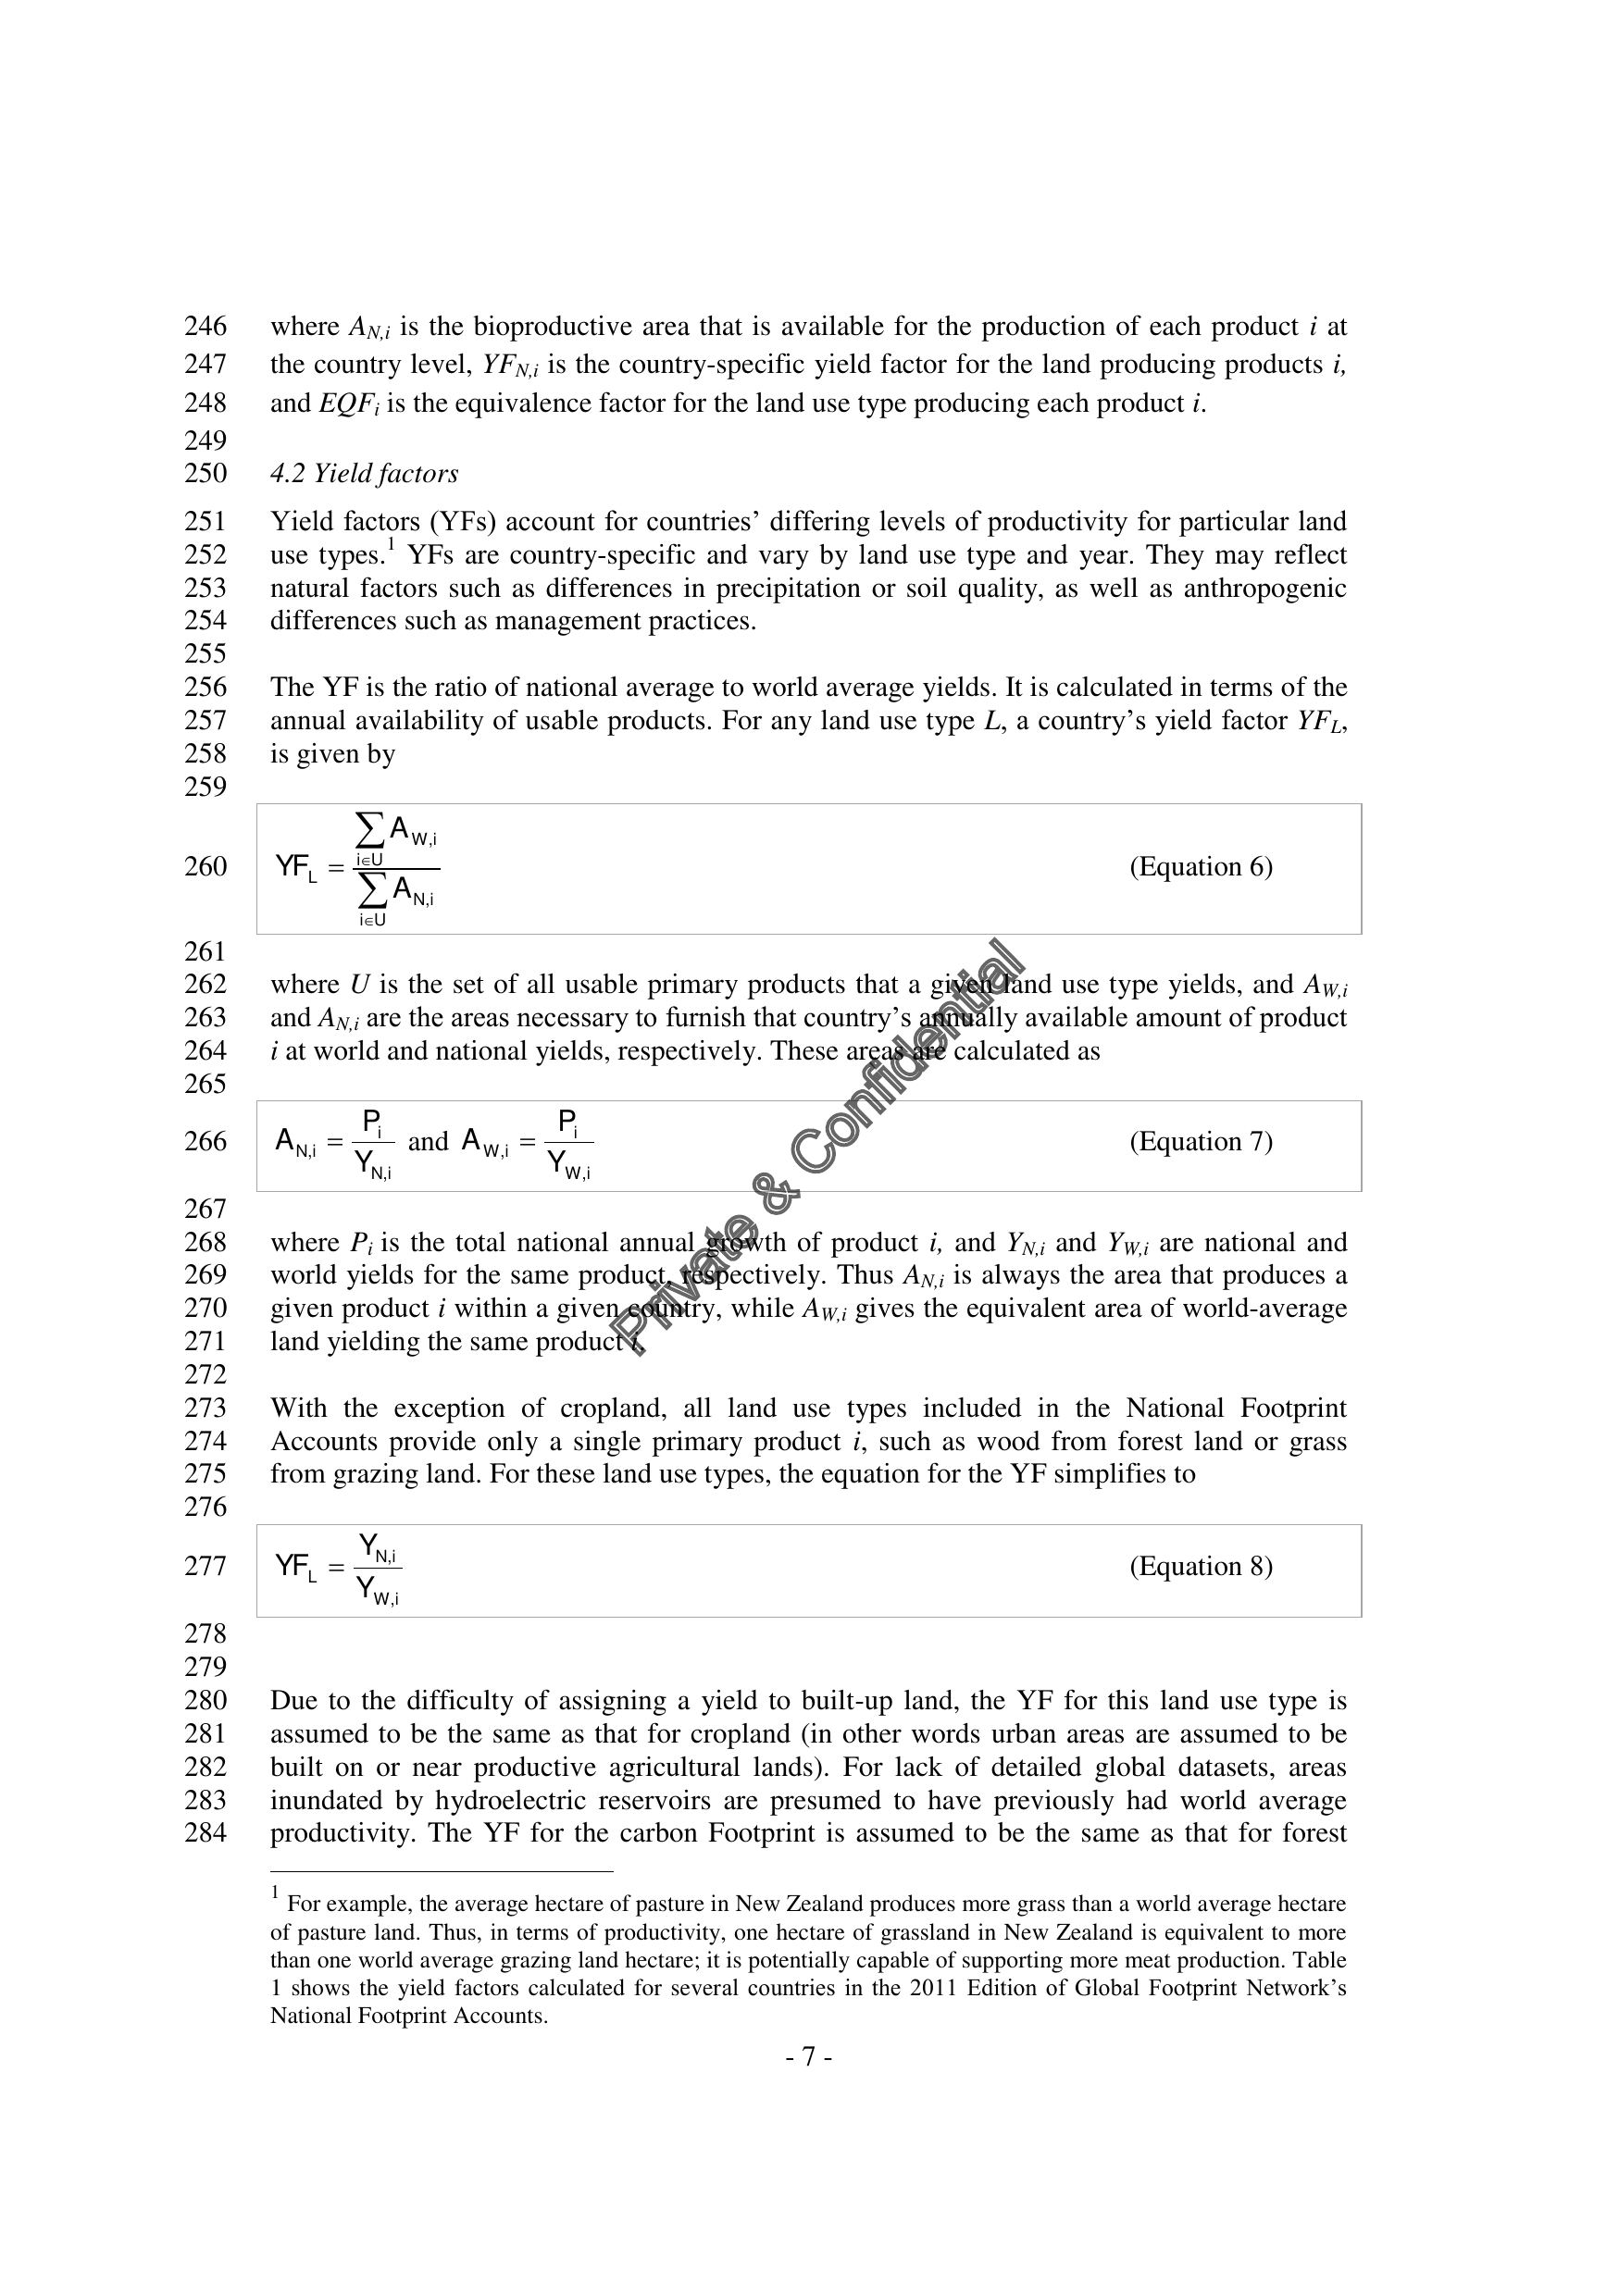 246 where A_N,i is the bioproductive area that is available for the production of each product i at
247 the country level, YF_N,i is the country-specific yield factor for the land producing products i,
248 and EQF_i is the equivalence factor for the land use type producing each product i.
249
250 4.2 Yield factors
251 Yield factors (YFs) account for countries’ differing levels of productivity for particular land
252 use types.1 YFs are country-specific and vary by land use type and year. They may reflect
253 natural factors such as differences in precipitation or soil quality, as well as anthropogenic
254 differences such as management practices.
255
256 The YF is the ratio of national average to world average yields. It is calculated in terms of the
257 annual availability of usable products. For any land use type L, a country’s yield factor YF_L,
258 is given by
259
260 YF_L = ∑_{i∈U} A_W,i / ∑_{i∈U} A_N,i (Equation 6)
261
262 where U is the set of all usable primary products that a given land use type yields, and A_W,i
263 and A_N,i are the areas necessary to furnish that country’s annually available amount of product
264 i at world and national yields, respectively. These areas are calculated as
265
266 A_N,i = P_i / Y_N,i and A_W,i = P_i / Y_W,i (Equation 7)
267
268 where P_i is the total national annual growth of product i, and Y_N,i and Y_W,i are national and
269 world yields for the same product, respectively. Thus A_N,i is always the area that produces a
270 given product i within a given country, while A_W,i gives the equivalent area of world-average
271 land yielding the same product i.
272
273 With the exception of cropland, all land use types included in the National Footprint
274 Accounts provide only a single primary product i, such as wood from forest land or grass
275 from grazing land. For these land use types, the equation for the YF simplifies to
276
277 YF_L = Y_N,i / Y_W,i (Equation 8)
278
279
280 Due to the difficulty of assigning a yield to built-up land, the YF for this land use type is
281 assumed to be the same as that for cropland (in other words urban areas are assumed to be
282 built on or near productive agricultural lands). For lack of detailed global datasets, areas
283 inundated by hydroelectric reservoirs are presumed to have previously had world average
284 productivity. The YF for the carbon Footprint is assumed to be the same as that for forest
1 For example, the average hectare of pasture in New Zealand produces more grass than a world average hectare
of pasture land. Thus, in terms of productivity, one hectare of grassland in New Zealand is equivalent to more
than one world average grazing land hectare; it is potentially capable of supporting more meat production. Table
1 shows the yield factors calculated for several countries in the 2011 Edition of Global Footprint Network’s
National Footprint Accounts.
- 7 -
Private & Confidential